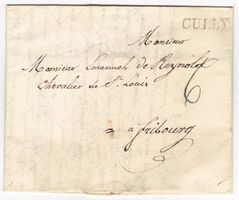 CULLY
Monsieur
Monsieur Emanuel de Reynold
Chevalier de St. Louis
6
a fribourg